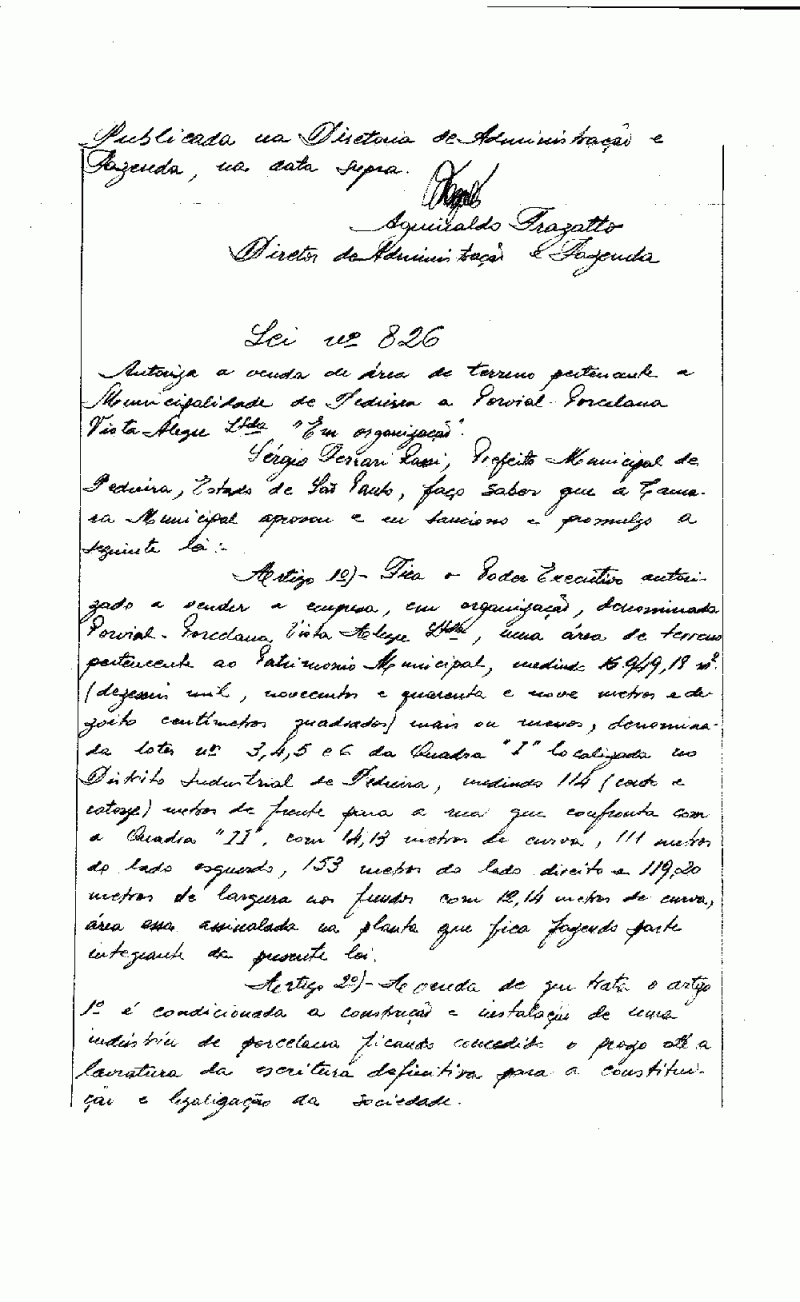 Publicada na Diretoria de Administração e
Fazenda, na data supra.
Aguinaldo Frazatto
Diretor de Administração e Fazenda
Lei nº 826
Autoriza a venda de área de terreno pertencente a
Municipalidade de Pedreira a Porvial-Porcelana
Vista Alegre Ltda "Em organização".
Sérgio Ferrari Rossi, Prefeito Municipal de
Pedreira, Estado de São Paulo, faço saber que a Cama-
ra Municipal aprovou e eu sanciono e promulgo a
seguinte lei:-
Artigo 1º)- Fica o Poder Executivo autori-
zado a vender a empresa, em organização, denominada
Porvial-Porcelana Vista Alegre Ltda, uma área de terreno
pertencente ao Patrimonio Municipal, medindo 16.949,18 m².
(dezesseis mil, novecentos e quarenta e nove metros e de-
zoito centímetros quadrados) mais ou menos, denomina-
da lotes nº 3,4,5 e 6 da Quadra "I" localizada no
Distrito Industrial de Pedreira, medindo 114 (cento e
catorze) metros de frente para a rua que confronta com
a Quadra "II", com 14,13 metros de curva, 111 metros
do lado esquerdo, 153 metros do lado direito e 119,20
metros de largura nos fundos com 12,14 metros de curva,
área essa assinalada na planta que fica fazendo parte
integrante da presente lei.
Artigo 2º)- A venda de que trata o artigo
1º é condicionada a construção e instalação de uma
indústria de porcelana ficando concedido o prazo até a
lavratura da escritura definitiva para a constitui-
ção e legalização da sociedade.